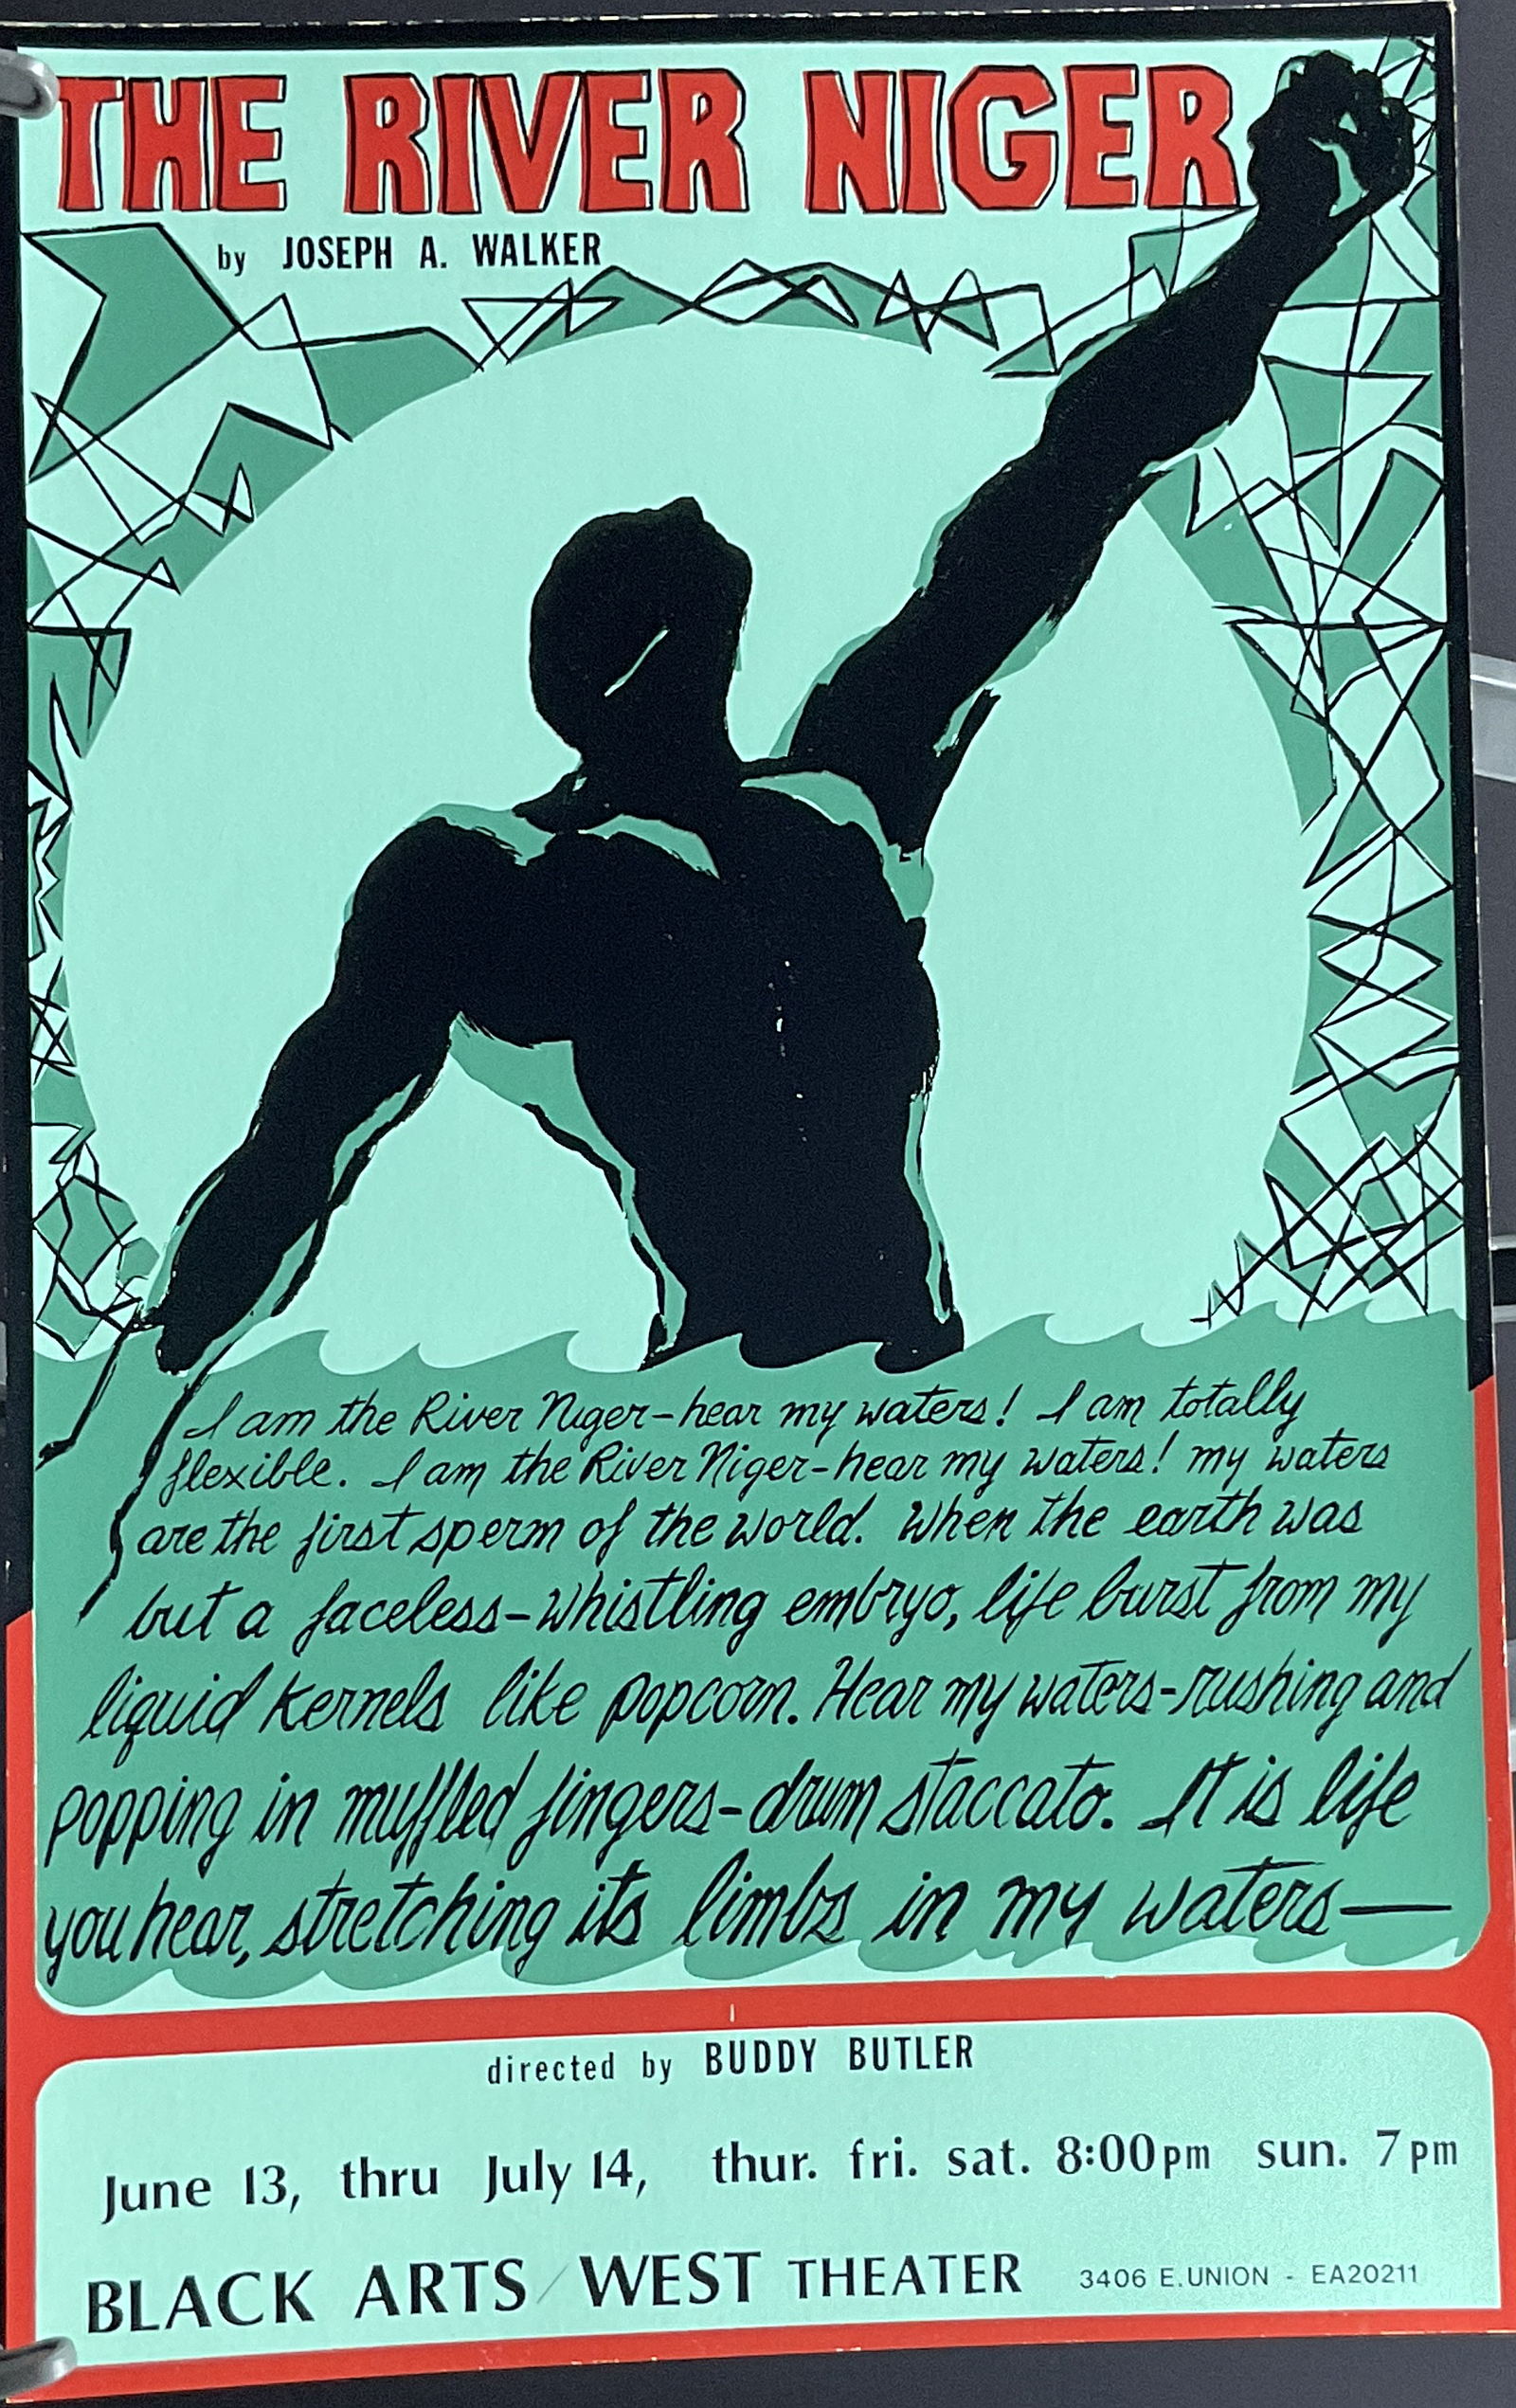 THE RIVER NIGER
by JOSEPH A. WALKER
I am the River Niger-hear my waters! I am totally
flexible. I am the River Niger-hear my waters! my waters
are the first sperm of the world. When the earth was
but a faceless-whistling embryo, life burst from my
liquid kernels like popcorn. Hear my waters-rushing and
popping in muffled fingers-drum staccato. It is life
you hear, stretching its limbs in my waters—
directed by BUDDY BUTLER
June 13, thru July 14, thur. fri. sat. 8:00pm sun. 7pm
BLACK ARTS/WEST THEATER 3406 E.UNION - EA20211